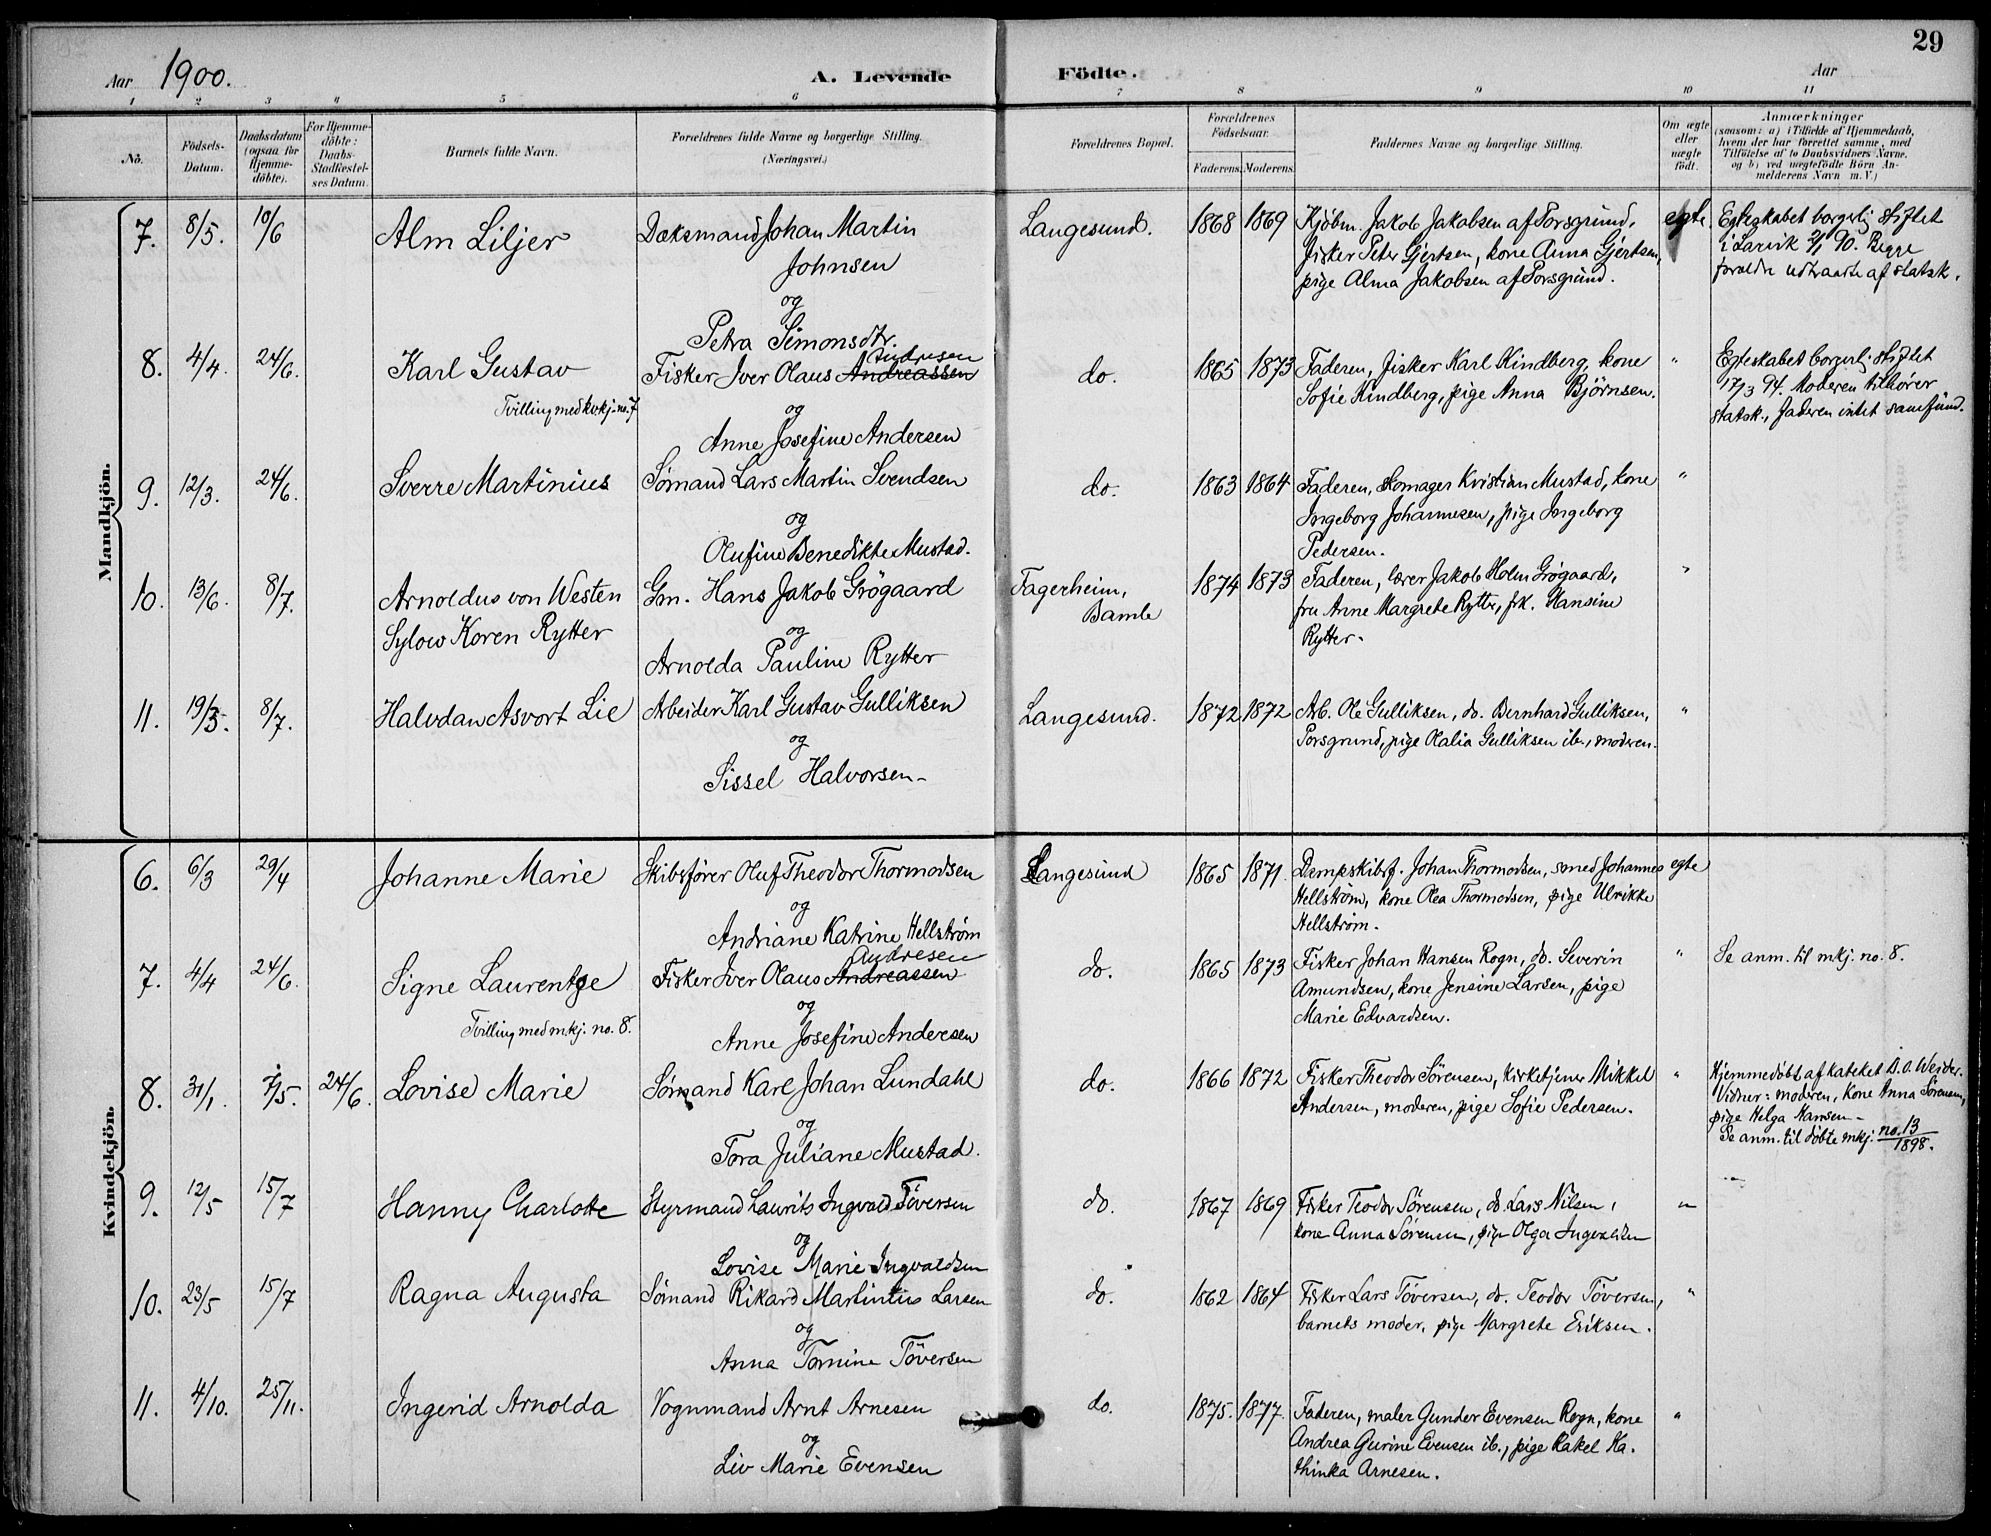 29
Aar 1900.
A. Levende
Födte.
Aar
1 2 3 4 5 6 7 8 9 10 11
No.
Födsels-
Datum.
Daabsdatum
(ogsaa for
Hjemme-
döbte).
For Hjemme-
döbte:
Daabs-
Stadfæstel-
ses Datum.
Barnets fulde Navn.
Forældrenes fulde Navne og borgerlige Stilling.
(Næringsvei.)
Forældrenes Bopæl.
Forældrenes
Födselsaar.
Faderens. Moderens.
Faddernes Navne og borgerlige Stilling.
Om ægte
eller
uægte
födt.
Anmærkninger
(saasom: a) i Tilfælde af Hjemmedaab,
hvem der har forrettet samme, med
Tilföielse af to Daabsvidners Navne,
og b) ved uægtefödte Börn An-
melderens Navn m. V.)
Mandkjön.
7. 8/5. 10/6 Alm Liljer
Dæksmand Johan Martin
Johnsen
og
Petra Simonsdtr.
Langesund. 1868 1869
Kjøbm. Jakob Jakobsen af Porsgrund,
fisker Peter Gjertsen, kone Anna Gjertsen,
pige Alma Jakobsen af Porsgrund.
egte.
Egteskabet borgerlig stiftet
i Larvik 2/1 90. Begge
forældre udtraadte af statsk.
8. 4/4. 24/6. Karl Gustav
Tvilling med kvkj. no. 7
Andresen
Fisker Iver Olaus Andreassen
og
Anne Josefine Andersen
do. 1865 1873
Faderen, fisker Karl Kindberg, kone
Sofie Kindberg, pige Anna Björnsen.
"
Egteskabet borgerlig stiftet
17/3 94. Moderen tilhörer
statsk., faderen intet samfund.
9. 12/3. 24/6. Sverre Martinius
Sömand Lars Martin Svendsen
og
Olufine Benedikte Mustad.
do. 1863 1864
Faderen, skomager Kristian Mustad, kone
Ingeborg Johannesen, pige Ingeborg
Pedersen.
"
10. 13/6. 8/7. Arnoldus von Westen
Sylow Koren Rytter
Gm. Hans Jakob Grögaard
og
Arnolda Pauline Rytter
Fagerheim,
Bamle
1874 1873
Faderen, lærer Jakob Holm Grögaard,
fru Anne Margrete Rytter, frk. Hansine
Rytter.
"
11. 19/5. 8/7. Halvdan Asvort Lie
Arbeider Karl Gustav Gulliksen
og
Sissel Halvorsen
Langesund. 1872 1872
Arb. Ole Gulliksen, do. Bernhard Gulliksen,
Porsgrund, pige Olalia Gulliksen ib., moderen.
"
Kvindekjön.
6. 6/3 29/4 Johanne Marie
Skibsförer Oluf Theodor Thormodsen
og
Andriane Katrine Hellström
Langesund 1865 1871.
Dampskibsf. Johan Thormodsen, smed Johannes
Hellström, kone Olea Thormodsen, pige Ulrikke
Hellström.
egte
7. 4/4 24/6. Signe Laurentze
Tvilling med mkj. no. 8.
Andresen
Fisker Iver Olaus Andreassen
og
Anne Josefine Andersen
do. 1865 1873
Fisker Johan Hansen Rogn, do. Severin
Amundsen, kone Jensine Larsen, pige
Marie Edvardsen.
"
Se anm. til mkj. no. 8.
8. 31/1. 7/5. 24/6. Lovise Marie
Sömand Karl Johan Lundahl
og
Tora Juliane Mustad.
do. 1866 1872
Fisker Theodor Sörensen, kirketjener Mikkel
Andersen, moderen, pige Sofie Pedersen.
"
Hjemmedöbt af kateket B. O. Weider.
Vidner: moderen, kone Anna Sörensen,
pige Helga Hansen.
Se anm. til döbte mkj. no. 13
1898.
9. 12/5 15/7 Hanny Charlotte
Styrmand Laurits Ingvald Töversen
og
Lovise Marie Ingvaldsen
do. 1867 1869
Fisker Teodor Sörensen, do. Lars Nilsen,
kone Anna Sörensen, pige Olga Ingvaldsen
"
10. 23/5 15/7 Ragna Augusta
Sömand Rikard Martinius Larsen
og
Anna Tomine Töversen
do. 1862 1864
Fisker Lars Töversen, do. Teodor Töversen,
barnets moder, pige Margrete Eriksen.
"
11. 4/10. 25/11. Ingerid Arnolda
Vognmand Arnt Arnesen
og
Liv Marie Evensen
do. 1875. 1877.
Faderen, maler Gunder Evensen Rogn, kone
Andrea Gurine Evensen ib., pige Rakel Ka-
thinka Arnesen.
"